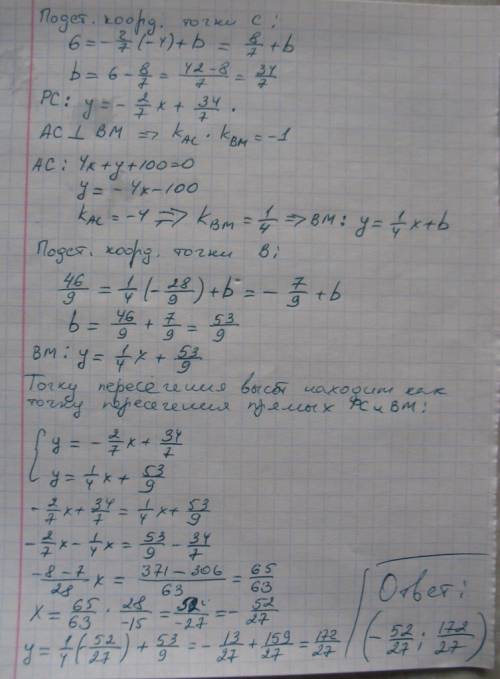 Подст. коорд. точки C:
6 = -2/7(-4) + b = 8/7 + b
b = 6 - 8/7 = (42-8)/7 = 34/7
PC: y = -2/7 x + 34/7.
AC ⊥ BM => k_AC · k_BM = -1
AC: 4x+y+100=0
y = -4x-100
k_AC = -4 => k_BM = 1/4 => BM: y = 1/4 x + b
Подст. коорд. точки B:
46/9 = 1/4(-28/9) + b = -7/9 + b
b = 46/9 + 7/9 = 53/9
BM: y = 1/4 x + 53/9
Точку пересечения высот находим как
точку пересечения прямых PC и BM:
{ y = -2/7 x + 34/7
y = 1/4 x + 53/9
-2/7 x + 34/7 = 1/4 x + 53/9
-2/7 x - 1/4 x = 53/9 - 34/7
(-8-7)/28 x = (371-306)/63 = 65/63
x = 65/63 · 28/-15 = 52/-27 = -52/27
y = 1/4(-52/27) + 53/9 = -13/27 + 159/27 = 172/27
Ответ:
(-52/27; 172/27)